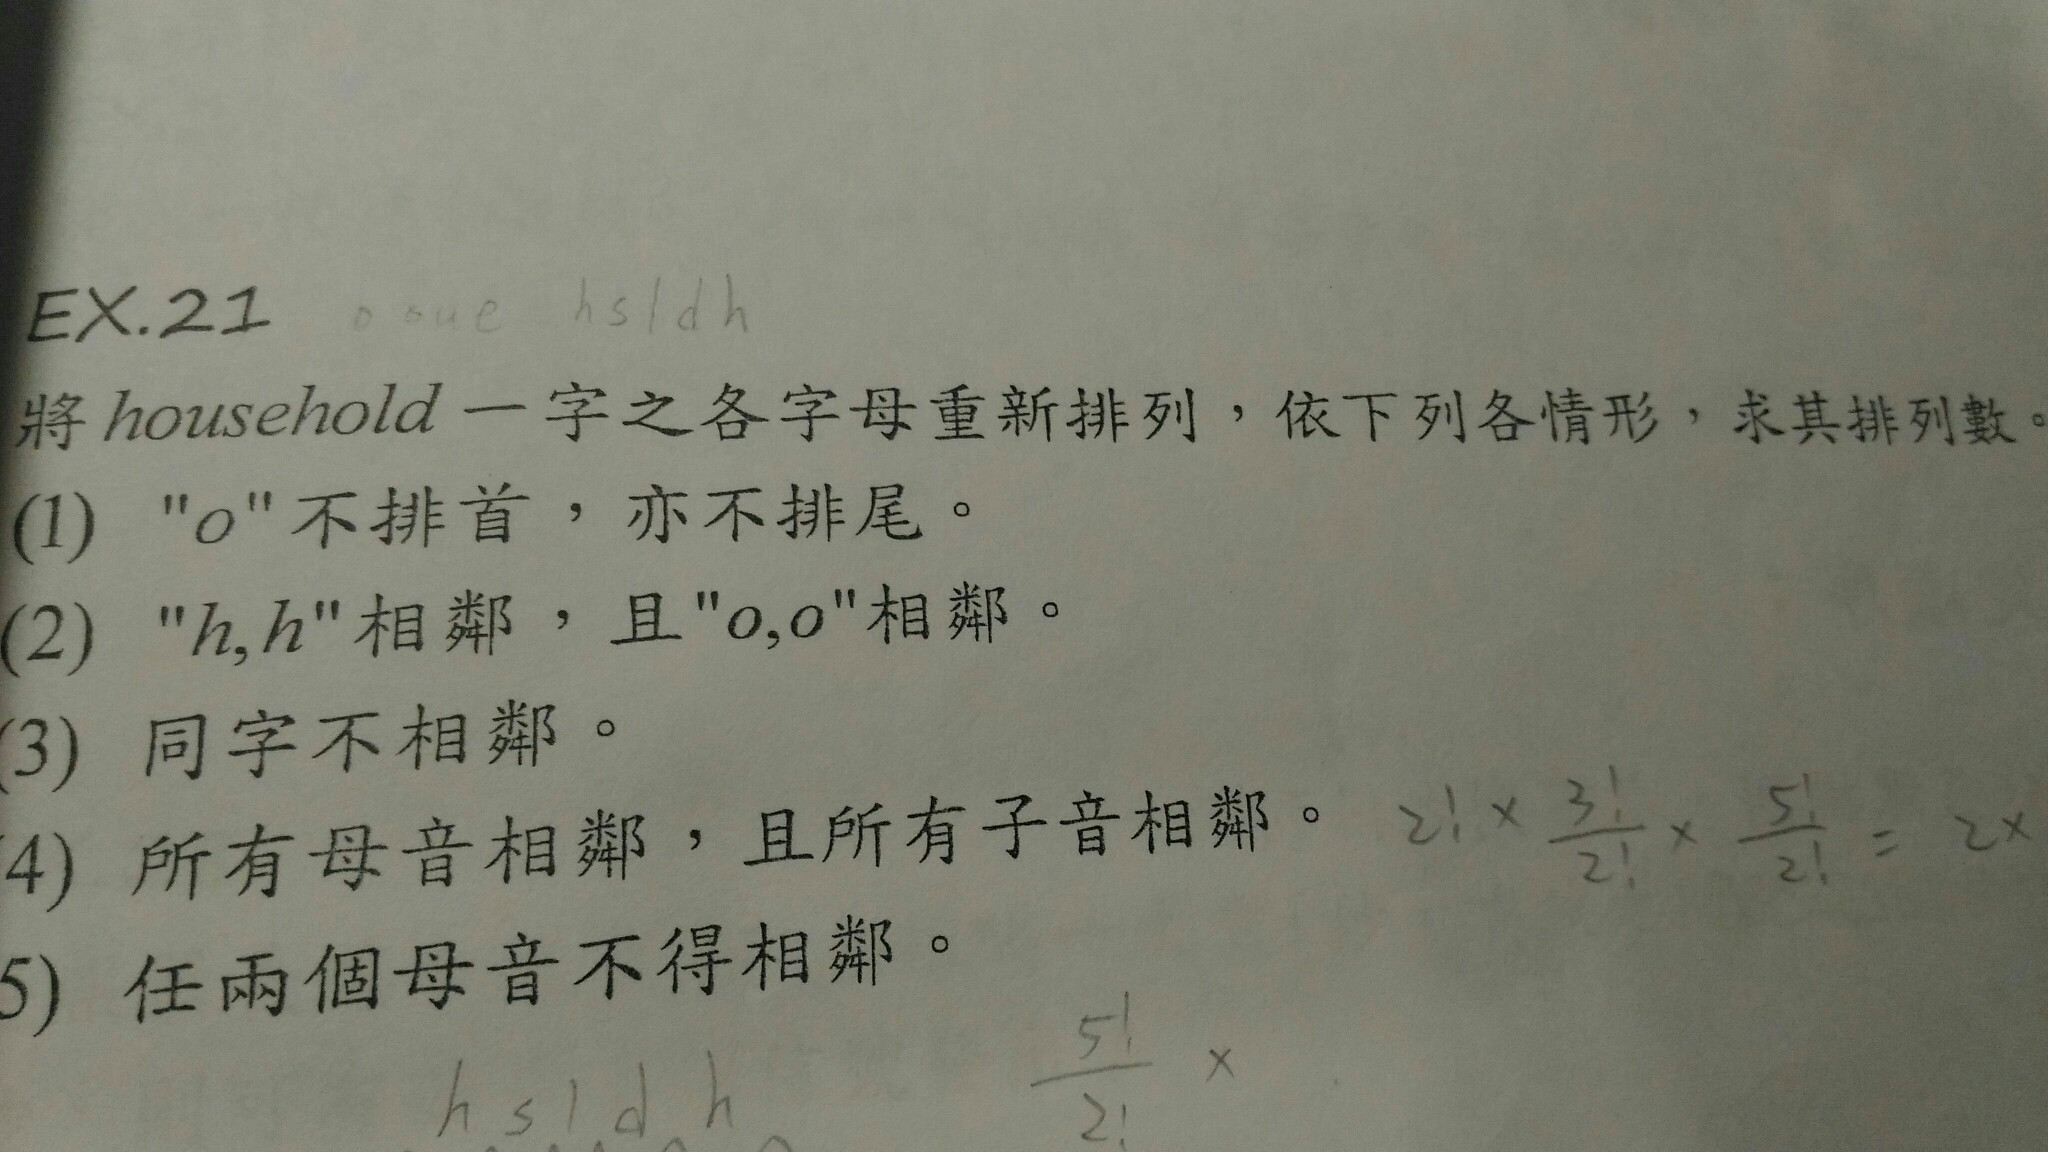 EX.21 o o u e h s l d h
將 household 一字之各字母重新排列，依下列各情形，求其排列數。
(1) "o"不排首，亦不排尾。
(2) "h,h"相鄰，且"o,o"相鄰。
(3) 同字不相鄰。
(4) 所有母音相鄰，且所有子音相鄰。 2! × 3!/2! × 5!/2! = 2×
5) 任兩個母音不得相鄰。
h s l d h 5!/2! ×